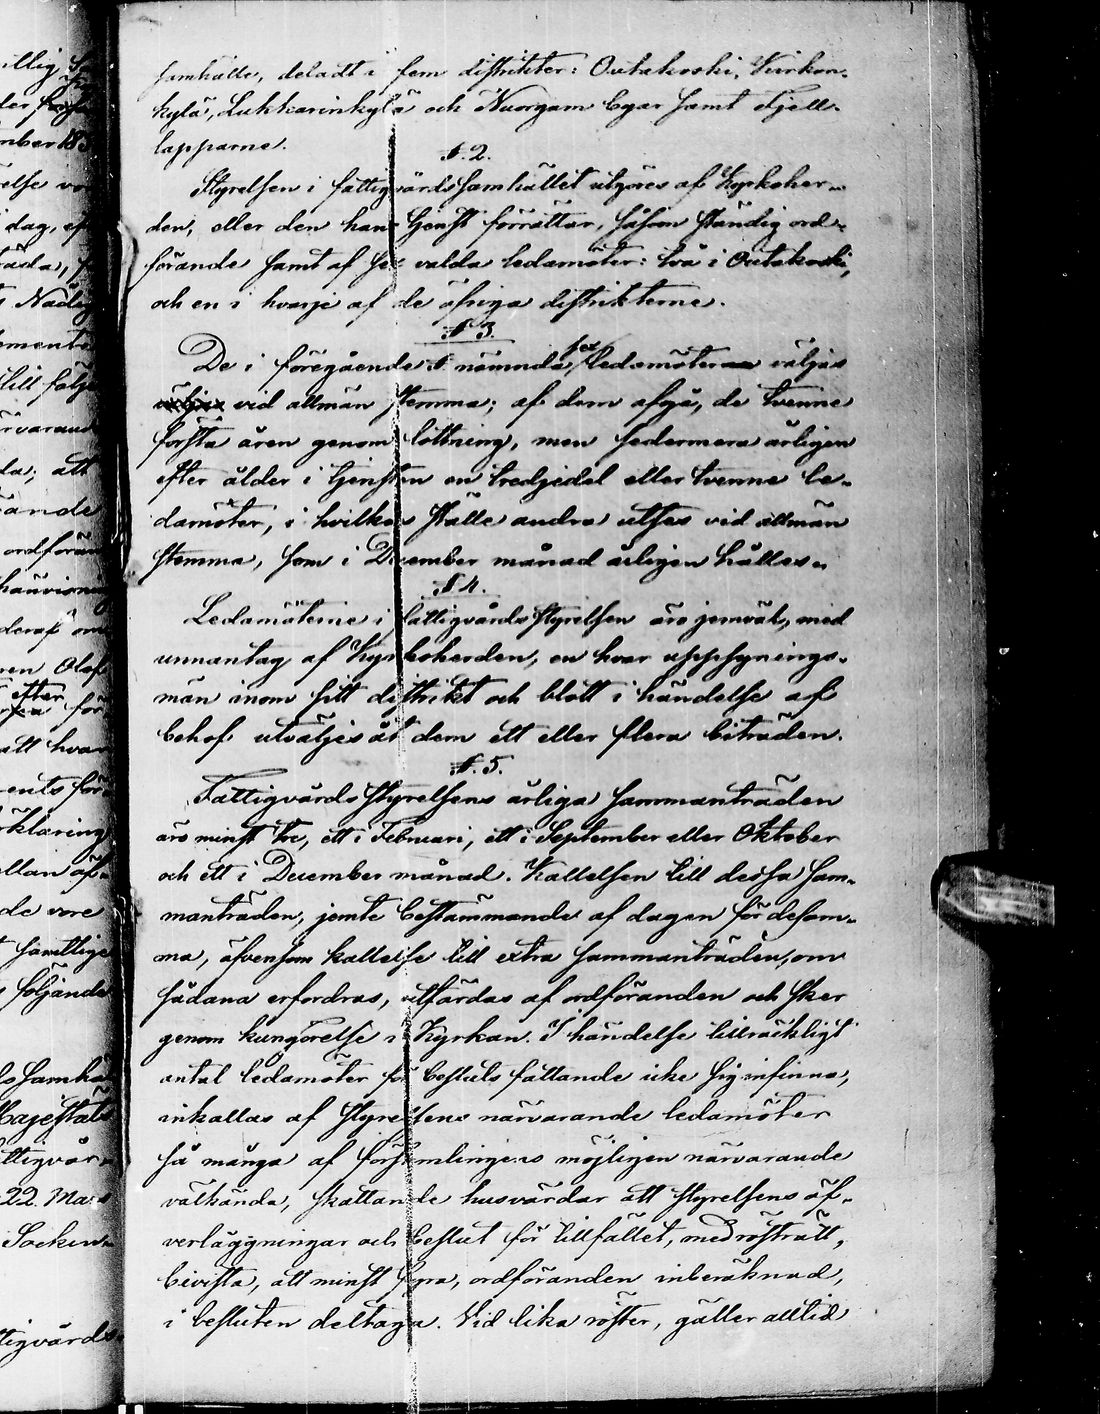 samhälle, deladt i fem distrikter: Outakoski, Kirkon-
kylä, Lukkarinkylä och Nuorgam byar samt Fjell-
lapparne.
§. 2.
Styrelsen i fattigvårdssamhället utgöres af Kyrkoher-
den, eller den hans tjenst förrättar, såsom ständig ord-
förande samt af sex valda ledamöter: två i Outakoski,
och en i hvarje af de öfriga distrikterne.
§ 3.
De i föregående § nämnda sex ledamöter väljas
vid allmän stemma; af dem afgå, de tvenne
första åren genom lottning, men sedermera årligen
efter ålder i tjensten en tredjedel eller tvenne le-
damöter, i hvilkas ställe andra utses vid allmän
stemma, som i December månad årligen hålles.
§ 4.
Ledamöterne i fattigvårdsstyrelsen äro jemväl, med
unnantag af Kyrkoherden, en hvar uppsynings-
man inom sitt distrikt och blott i händelse af
behof utväljes åt dem ett eller flera biträden.
§. 5.
Fattigvårdsstyrelsens årliga sammanträden
äro minst tre, ett i Februari, ett i September eller Oktober
och ett i December månad. Kallelsen till dessa sam-
manträden, jemte bestämmande af dagen för desam-
ma, äfvensom kallelse till extra sammanträden, om
sådana erfordras, utfärdas af ordföranden och sker
genom kungörelse i Kyrkan. I händelse tillräckligt
antal ledamöter för besluts fattande icke sig infinna,
inkallas af styrelsens närvarande ledamöter
så många af församlingens möjligen närvarande
välkända, skattande husvärdar att styrelsens öf-
verläggningar och beslut för tillfället, med rösträtt,
bivista, att minst fyra, ordföranden inberäknad,
i besluten deltaga. Vid lika röster, gäller alltid